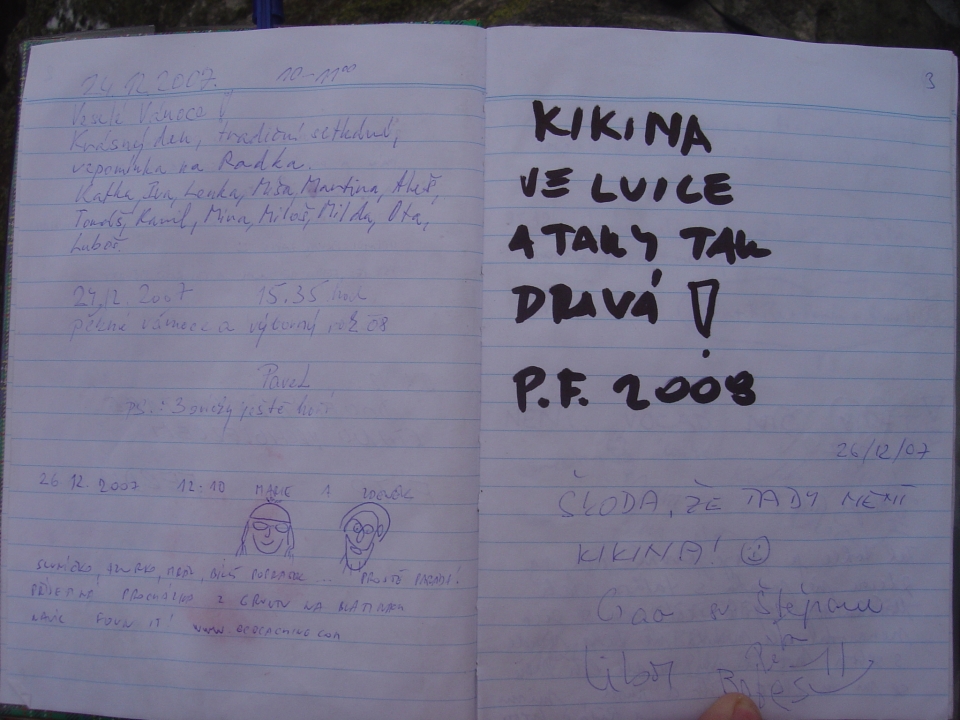 24.12.2007. 10-11⁰⁰
Veselé Vánoce!
Krásný den, tradiční setkání,
vzpomínka na Radka.
Katka, Iva, Lenka, Míša, Martina, Aleš,
Tomáš, Kamil, Mína, Miloš, Milda, Ota,
Luboš.
24.12.2007 15.35 hod
pěkné vánoce a výborný rok 08
Pavel
ps.: 3 ještě hoří
26.12.2007 12:10 MARIE A ZDENĚK
SLUNÍČKO, PROSTĚ PARÁDA!
PROCHÁZKA Z NA
NAVÍC FOUN IT! WWW.GEOCACHING.COM
3
KIKINA
VE LVICE
A TAKY TAK
DRAVÁ!
P.F. 2008
26/12/07
ŠKODA, ŽE TADY NENÍ
KIKINA! ☺
Libor